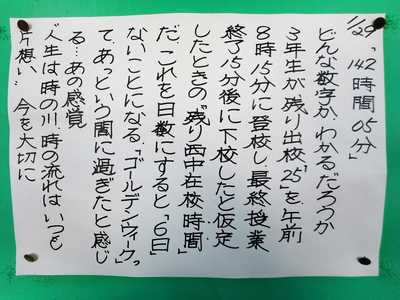 1/29「142時間05分」
どんな数字かわかるだろうか
3年生が残り出校“25”を、午前
8時15分に登校し、最終授業
終了15分後に下校したと仮定
したときの“残り西中在校時間”
だ。これを日数にすると「6日」
ないことになる。“ゴールデンウィーク”っ
て、あっという間に過ぎたと感じ
る…あの感覚
“人生は時の川、時の流れはいつも
片想い” 今を大切に